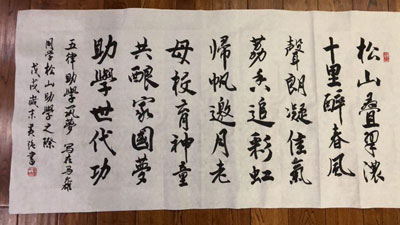 松山疊翠濃
十里醉春風
聲朗凝佳氣
荔香追彩虹
歸帆邀月老
母校育神童
共釀家國夢
助學世代功
五律助學筑夢 写在马雄
同学松山助学之际
戊戌歲末 書